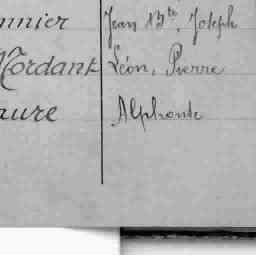 nnier Jean Bte, Joseph
Mordant Léon, Pierre
aure Alphonse